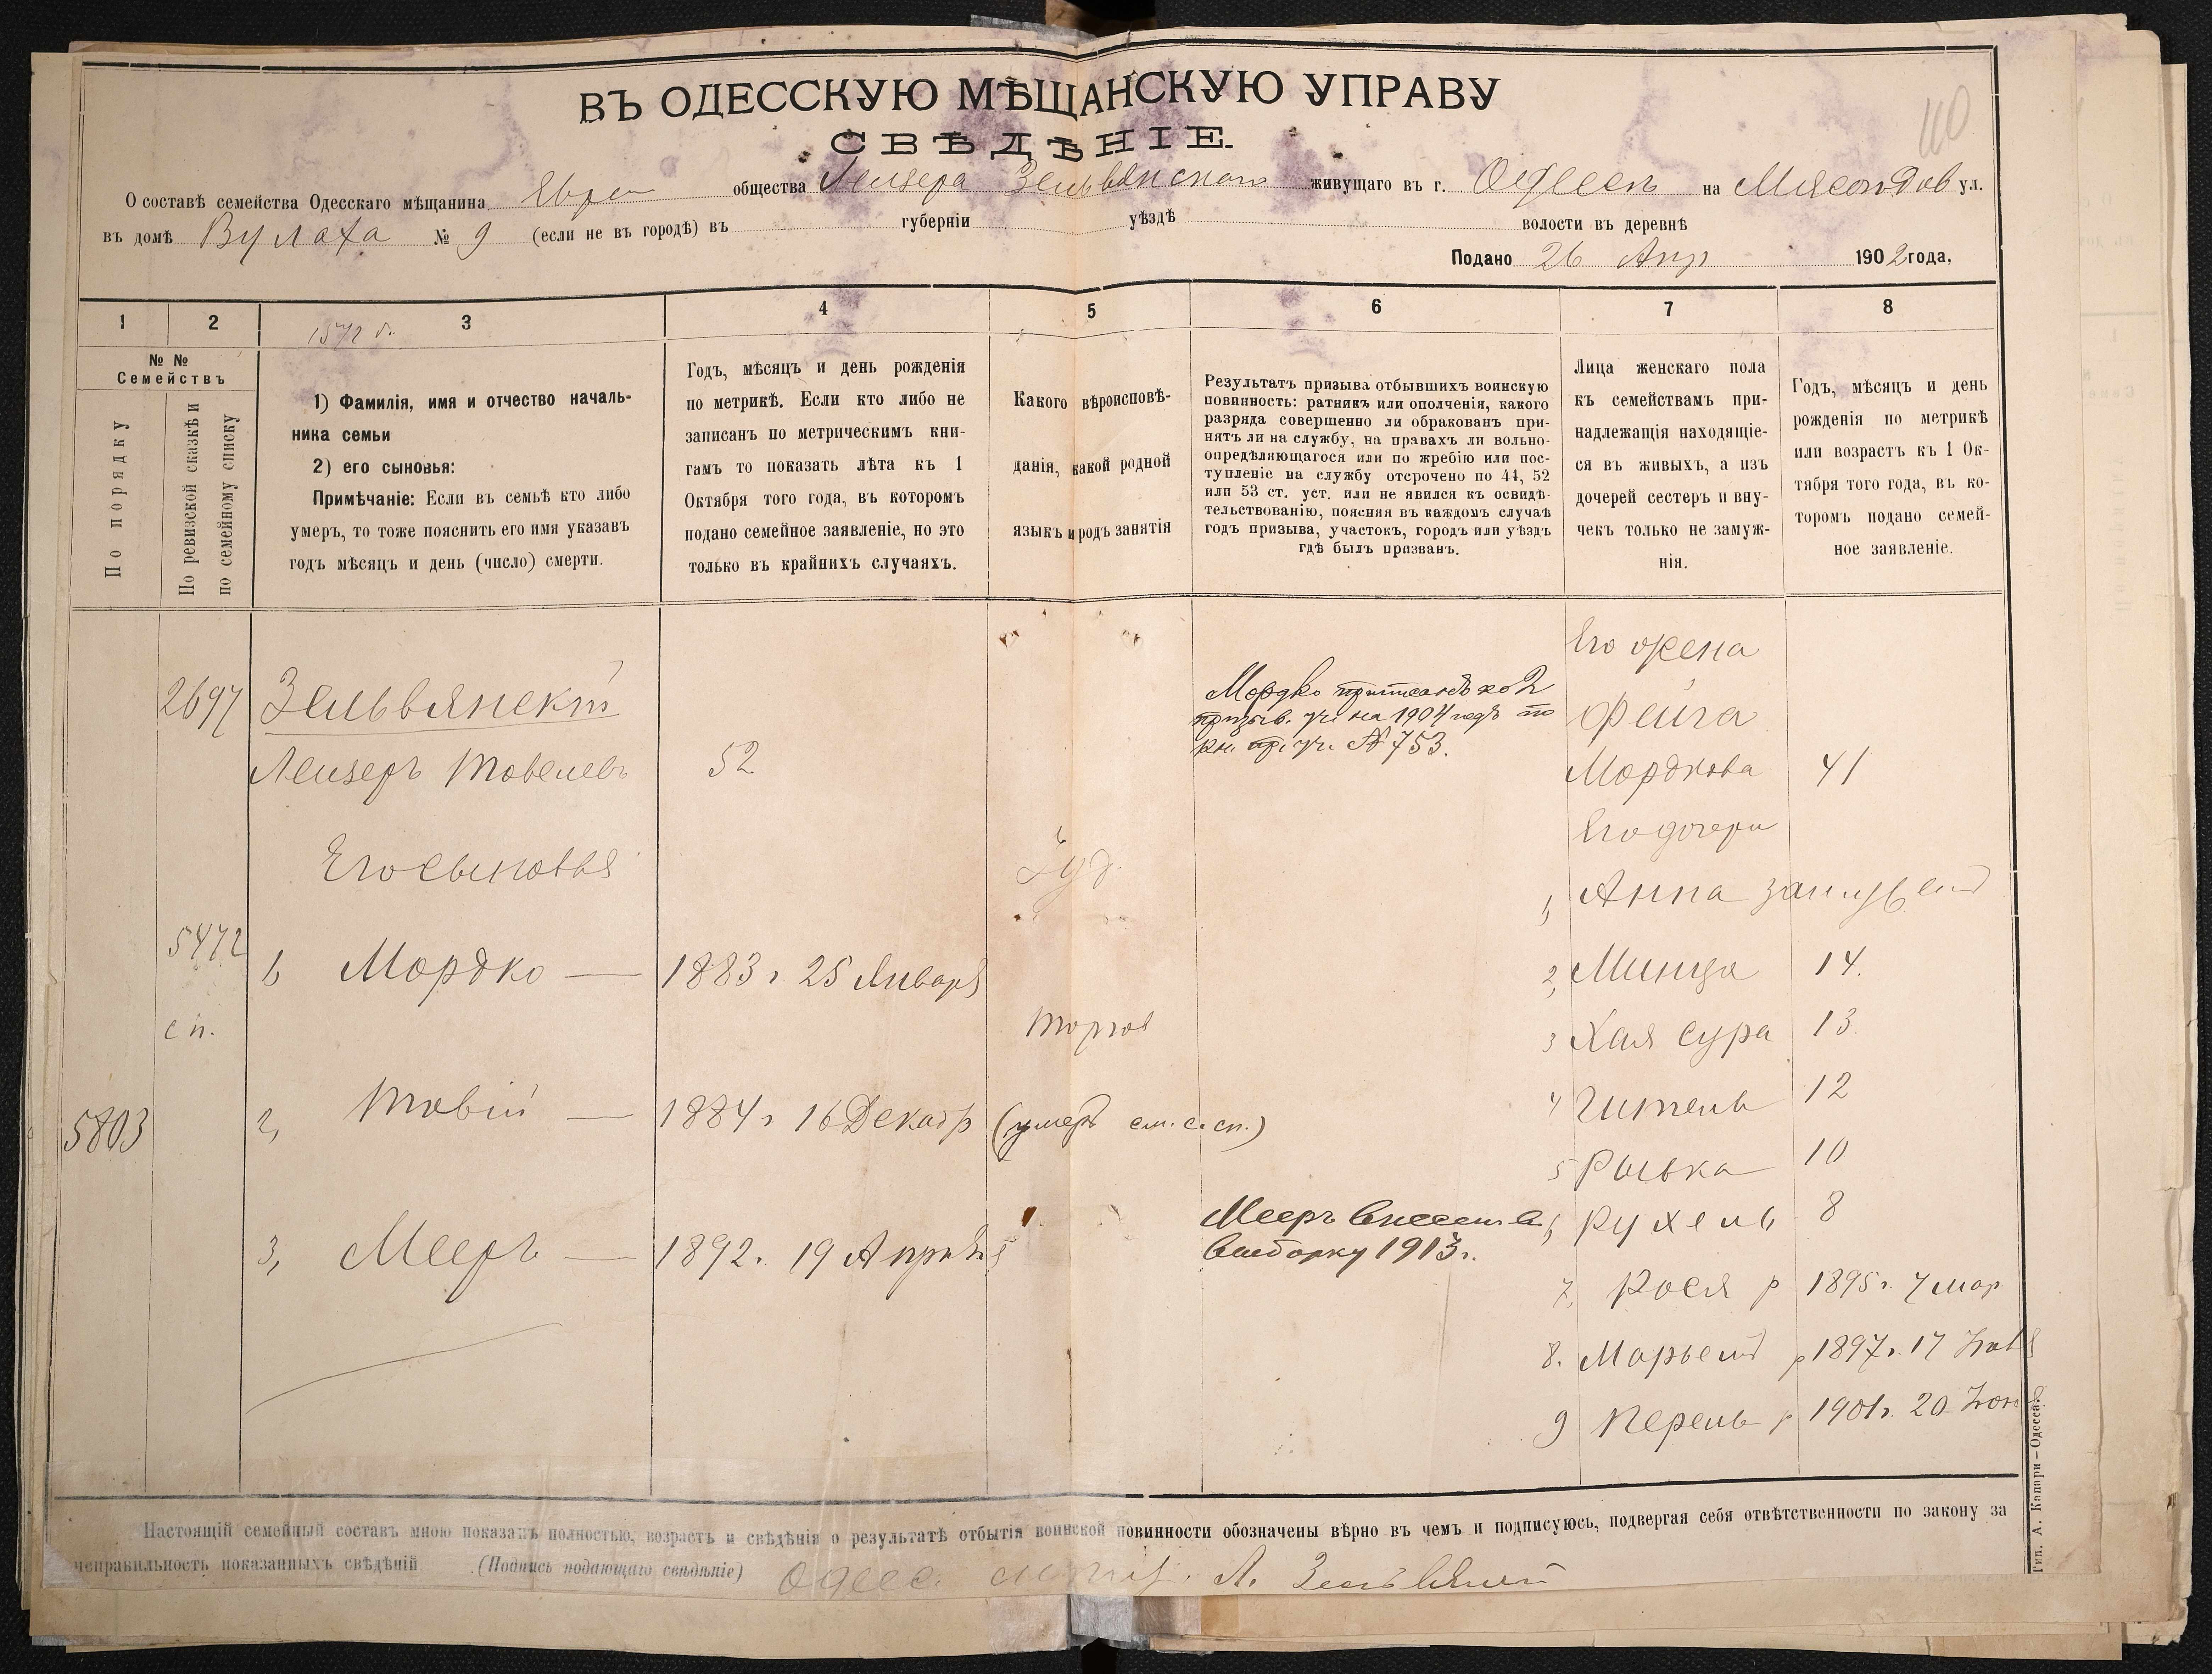 110
ВЪ ОДЕССКУЮ МѢЩАНСКУЮ УПРАВУ
СВѢДѢНІЕ.
О составѣ семейства Одесскаго мѣщанина Евре общества Лейзера Зельвянскаго живущаго въ г. Одессѣ на Мясоѣдов ул.
въ домѣ Вулаха № 9 (если не въ городѣ) въ губерніи уѣздѣ волости въ деревнѣ
Подано 26 Апр 1902 года,
1 2 3 4 5 6 7 8
1572 г.
№ № Семействъ
По порядку
По ревизской сказкѣ и по семейному списку
1) Фамилія, имя и отчество началь-
ника семьи
2) его сыновья:
Примѣчаніе: Если въ семьѣ кто либо
умеръ, то тоже пояснить его имя указавъ
годъ мѣсяцъ и день (число) смерти.
Годъ, мѣсяцъ и день рожденія
по метрикѣ. Если кто либо не
записанъ по метрическимъ кни-
гамъ то показать лѣта къ 1
Октября того года, въ которомъ
подано семейное заявленіе, но это
только въ крайнихъ случаяхъ.
Какого вѣроисповѣ-
данія, какой родной
языкъ и родъ занятія
Результатъ призыва отбывшихъ воинскую
повинность: ратникъ или ополченія, какого
разряда совершенно ли обракованъ при-
нятъ ли на службу, на правахъ ли вольно-
опредѣляющагося или по жребію или пос-
тупленіе на службу отсрочено по 44, 52
или 53 ст. уст. или не явился къ освидѣ-
тельствованію, поясняя въ каждомъ случаѣ
годъ призыва, участокъ, городъ или уѣздъ
гдѣ былъ призванъ.
Лица женскаго пола
къ семействамъ при-
надлежащія находящіе-
ся въ живыхъ, а изъ
дочерей сестеръ и вну-
чекъ только не замуж-
нія.
Годъ, мѣсяцъ и день
рожденія по метрикѣ
или возрастъ къ 1 Ок-
тября того года, въ ко-
торомъ подано семей-
ное заявленіе.
2697 Зельвянскій
Лейзеръ Товелевъ 52
Его сыновья
5472 1 Мордко — 1883 г. 25 Января
сп.
5803 2, Товій — 1884 г 16 Декабр (умеръ см. с. сп.)
3, Мееръ — 1892 г. 19 Апрѣля
Іуд.
Торгов
Мордко приписанъ ко 2
призыв. уч. на 1904 годъ по
кн. пр. уч. № 753.
Мееръ внесенъ в
выборку 1913 г.
Его жена
Фейга
Мордкова 41
Его дочери
1, Анна замуж
2, Минця 14.
3 Хая Сура 13.
4 Гитель 12
5 Ривка 10
6, Рухель 8
7, Рося р 1895 г. 7 мар
8. Марьем р 1897 г. 17
9 Перель р 1901 г. 20
Настоящій семейный составъ мною показанъ полностью, возрастъ и свѣдѣнія о результатѣ отбытія воинской повинности обозначены вѣрно въ чемъ и подписуюсь, подвергая себя отвѣтственности по закону за
неправильность показанныхъ свѣдѣній (Подпись подающаго свѣдѣніе) Одесс. Л. Зельвянскій
Тип. А. Капари—Одесса.